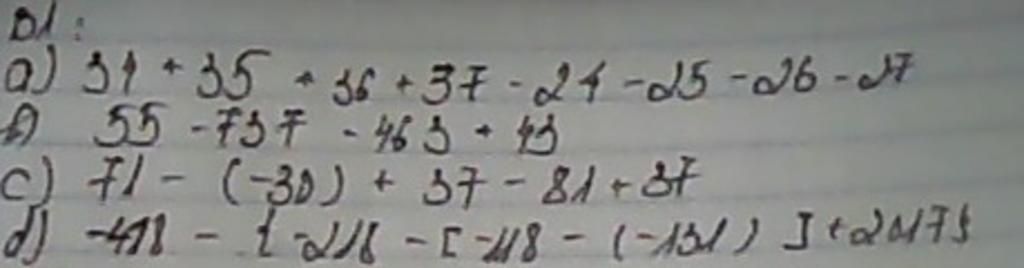 B1:
a) 34 + 35 + 36 + 37 - 24 - 25 - 26 - 27
b) 55 - 737 - 463 + 45
c) 71 - (-30) + 37 - 81 + 37
d) -418 - { -218 - [ -118 - (-131) ] + 2017 }